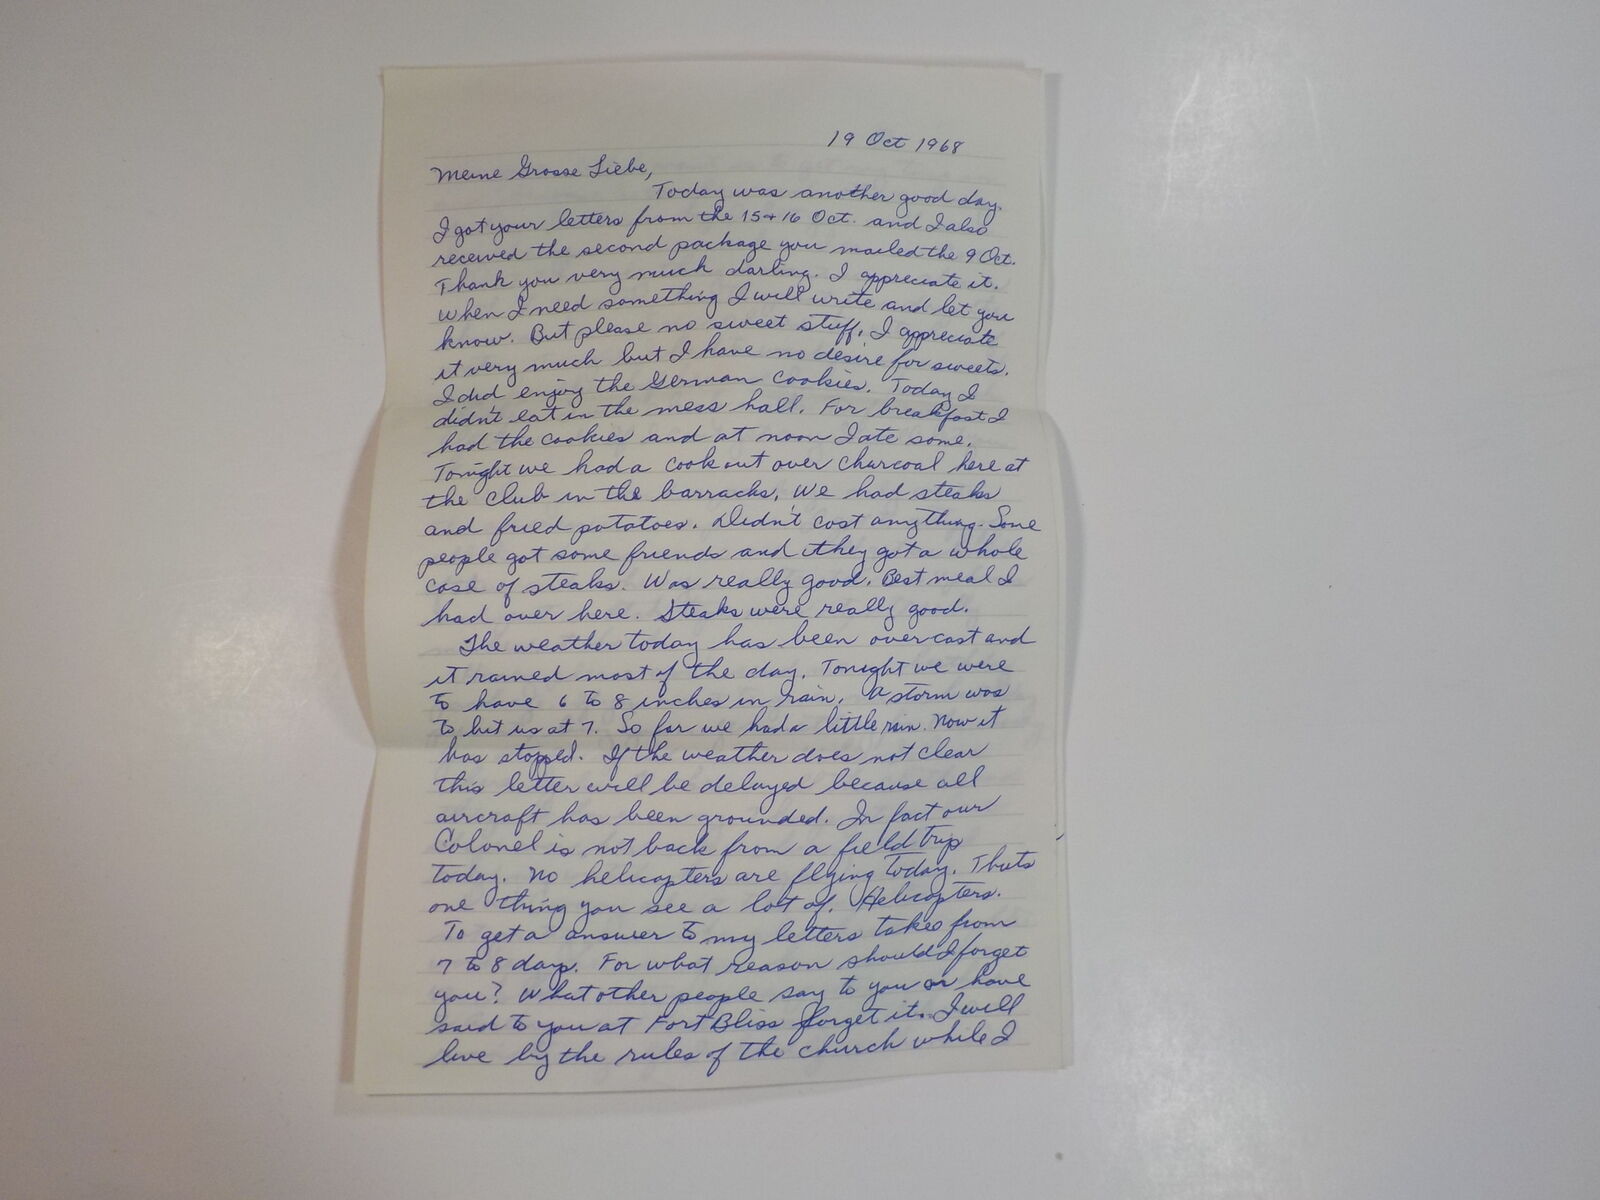 19 Oct 1968
Meine Grosse Liebe,
Today was another good day.
I got your letters from the 15 + 16 Oct. and I also
received the second package you mailed the 9 Oct.
Thank you very much darling. I appreciate it.
When I need something I will write and let you
know. But please no sweet stuff. I appreciate
it very much but I have no desire for sweets.
I did enjoy the German cookies. Today I
didn't eat in the mess hall. For breakfast I
had the cookies and at noon I ate some.
Tonight we had a cook out over charcoal here at
the club in the barracks. We had steaks
and fried potatoes. Didn't cost anything. Some
people got some friends and they got a whole
case of steaks. Was really good. Best meal I
had over here. Steaks were really good.
The weather today has been overcast and
it rained most of the day. Tonight we were
to have 6 to 8 inches in rain. A storm was
to hit us at 7. So far we had a little rain. Now it
has stopped. If the weather does not clear
this letter will be delayed because all
aircraft has been grounded. In fact our
Colonel is not back from a field trip
today. No helicopters are flying today. Thats
one thing you see a lot of. Helicopters.
To get a answer to my letters takes from
7 to 8 days. For what reason should I forget
you? What other people say to you or have
said to you at Fort Bliss forget it. I will
live by the rules of the church while I